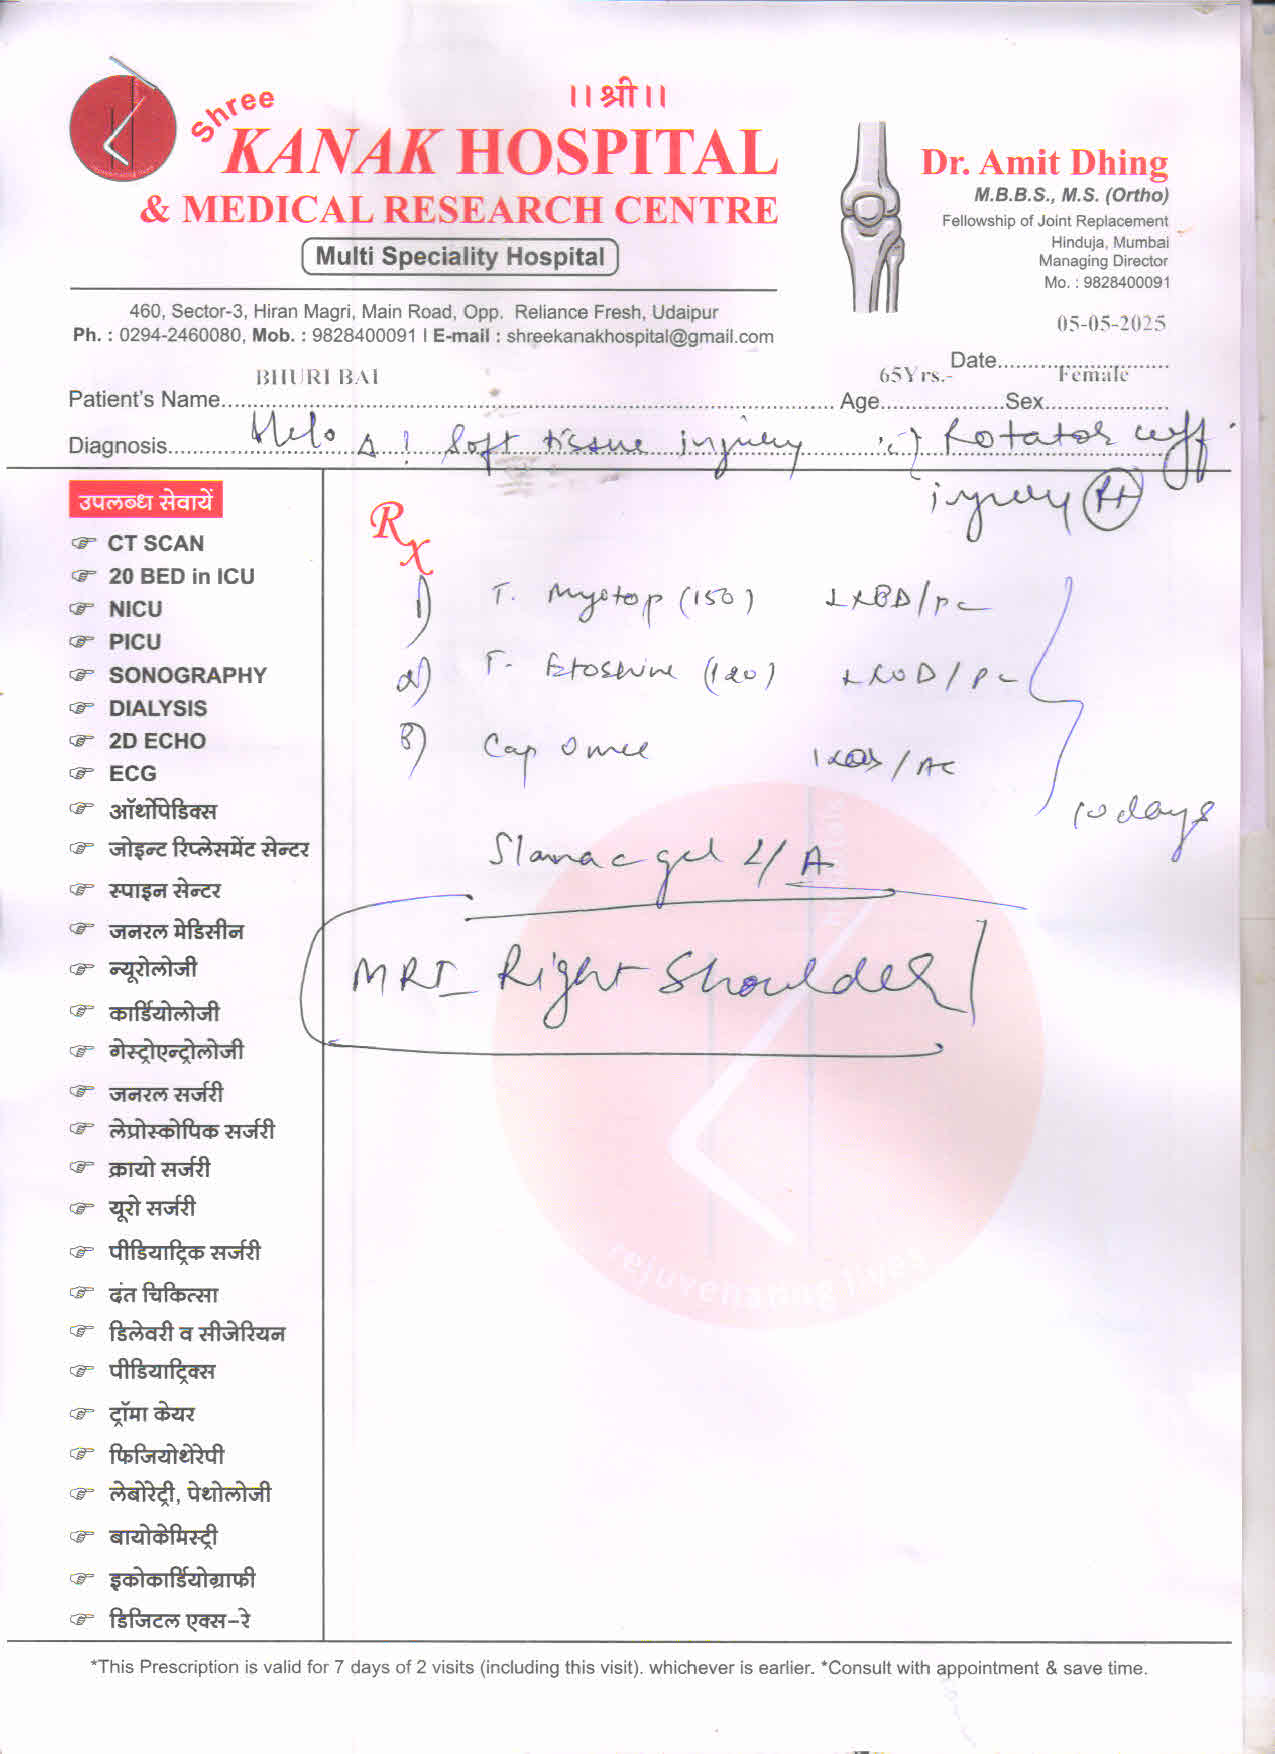 ।। श्री ।।
Shree
KANAK HOSPITAL
& MEDICAL RESEARCH CENTRE
Multi Speciality Hospital
460, Sector-3, Hiran Magri, Main Road, Opp. Reliance Fresh, Udaipur
Ph. : 0294-2460080, Mob. : 9828400091 I E-mail : shreekanakhospital@gmail.com
Dr. Amit Dhing
M.B.B.S., M.S. (Ortho)
Fellowship of Joint Replacement
Hinduja, Mumbai
Managing Director
Mo. : 9828400091
05-05-2025
Date
BHURI BAI 65Yrs.- Female
Patient's Name Age Sex
Diagnosis Δ ! Soft tissue injury Rotator cuff
injury Rt
उपलब्ध सेवायें
CT SCAN
20 BED in ICU
NICU
PICU
SONOGRAPHY
DIALYSIS
2D ECHO
ECG
ऑर्थोपेडिक्स
जोइन्ट रिप्लेसमेंट सेन्टर
स्पाइन सेन्टर
जनरल मेडिसीन
न्यूरोलोजी
कार्डियोलोजी
गेस्ट्रोएन्ट्रोलोजी
जनरल सर्जरी
लेप्रोस्कोपिक सर्जरी
क्रायो सर्जरी
यूरो सर्जरी
पीडियाट्रिक सर्जरी
दंत चिकित्सा
डिलेवरी व सीजेरियन
पीडियाट्रिक्स
ट्रॉमा केयर
फिजियोथेरेपी
लेबोरेट्री, पेथोलोजी
बायोकेमिस्ट्री
इकोकार्डियोग्राफी
डिजिटल एक्स-रे
Rx
1) T. Myotop (150) 1XBD/PC
2) T. Etoshine (120) 1XOD/PC
3) Cap Omee 1XOD/AC
10 days
gel L/A
MRI Right Shoulder
rejuvenating lives
*This Prescription is valid for 7 days of 2 visits (including this visit). whichever is earlier. *Consult with appointment & save time.